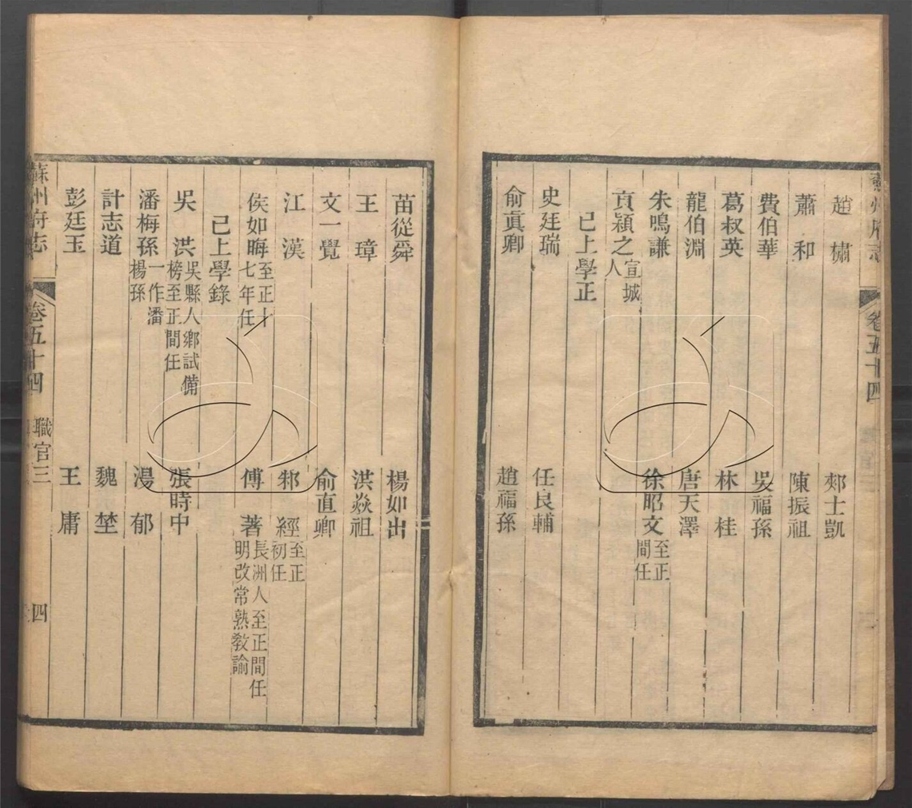 趙㯽　郟士凱
蕭和　陳振祖
費伯華　吳福孫
葛叔英　林桂
龍伯淵　唐天澤
朱鳴謙　徐昭文至正間任
貢穎之宣城人
已上學正
史廷瑞　任良輔
俞眞卿　趙福孫
苗從舜　楊如出
王璋　洪焱祖
文一覺　俞直卿
江漢　邾經至正初任
侯如晦至正十七年任　傅著長洲人至正間任明改常熟敎諭
已上學錄
吳洪吳縣人鄉試備榜至正間任　張時中
潘梅孫一作潘楊孫　湯郁
計志道　魏埜
彭廷玉　王庸
蘇州府志　卷五十四　職官三　四